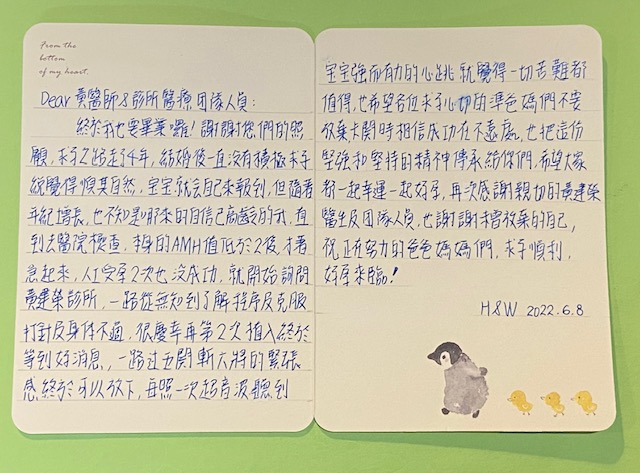 From the
bottom
of my heart.
Dear 黃醫師&診所醫療團隊人員:
終於我也要畢業囉!謝謝您們的照
顧,求子之路走了4年,結婚後一直沒有積極求子
總覺得順其自然,宝宝就会自己來報到,但隨著
年紀增長,也不知是哪來的自信已高齡的我,直
到去醫院檢查,本身的AMH值低於2後,才著
急起來,人工受孕2次也沒成功,就開始詢問
黃建榮診所,一路從無知到了解程序及克服
打針及身体不適,很慶幸再第2次植入終於
等到好消息,一路过五関斬六將的緊張
感終於可以放下,再照一次超音波聽到
宝宝強而有力的心跳就覺得一切苦難都
值得,也希望各位求子心切的準爸媽們不要
放棄卡関時相信成功在不遠處,也把這份
堅強和堅持的精神傳承給你們,希望大家
都一起幸運一起好孕,再次感謝親切的黃建榮
醫生及团隊人員,也謝謝未曾放棄的自己,
祝正在努力的爸爸媽媽們,求子順利,
好孕來臨!
H&W 2022.6.8